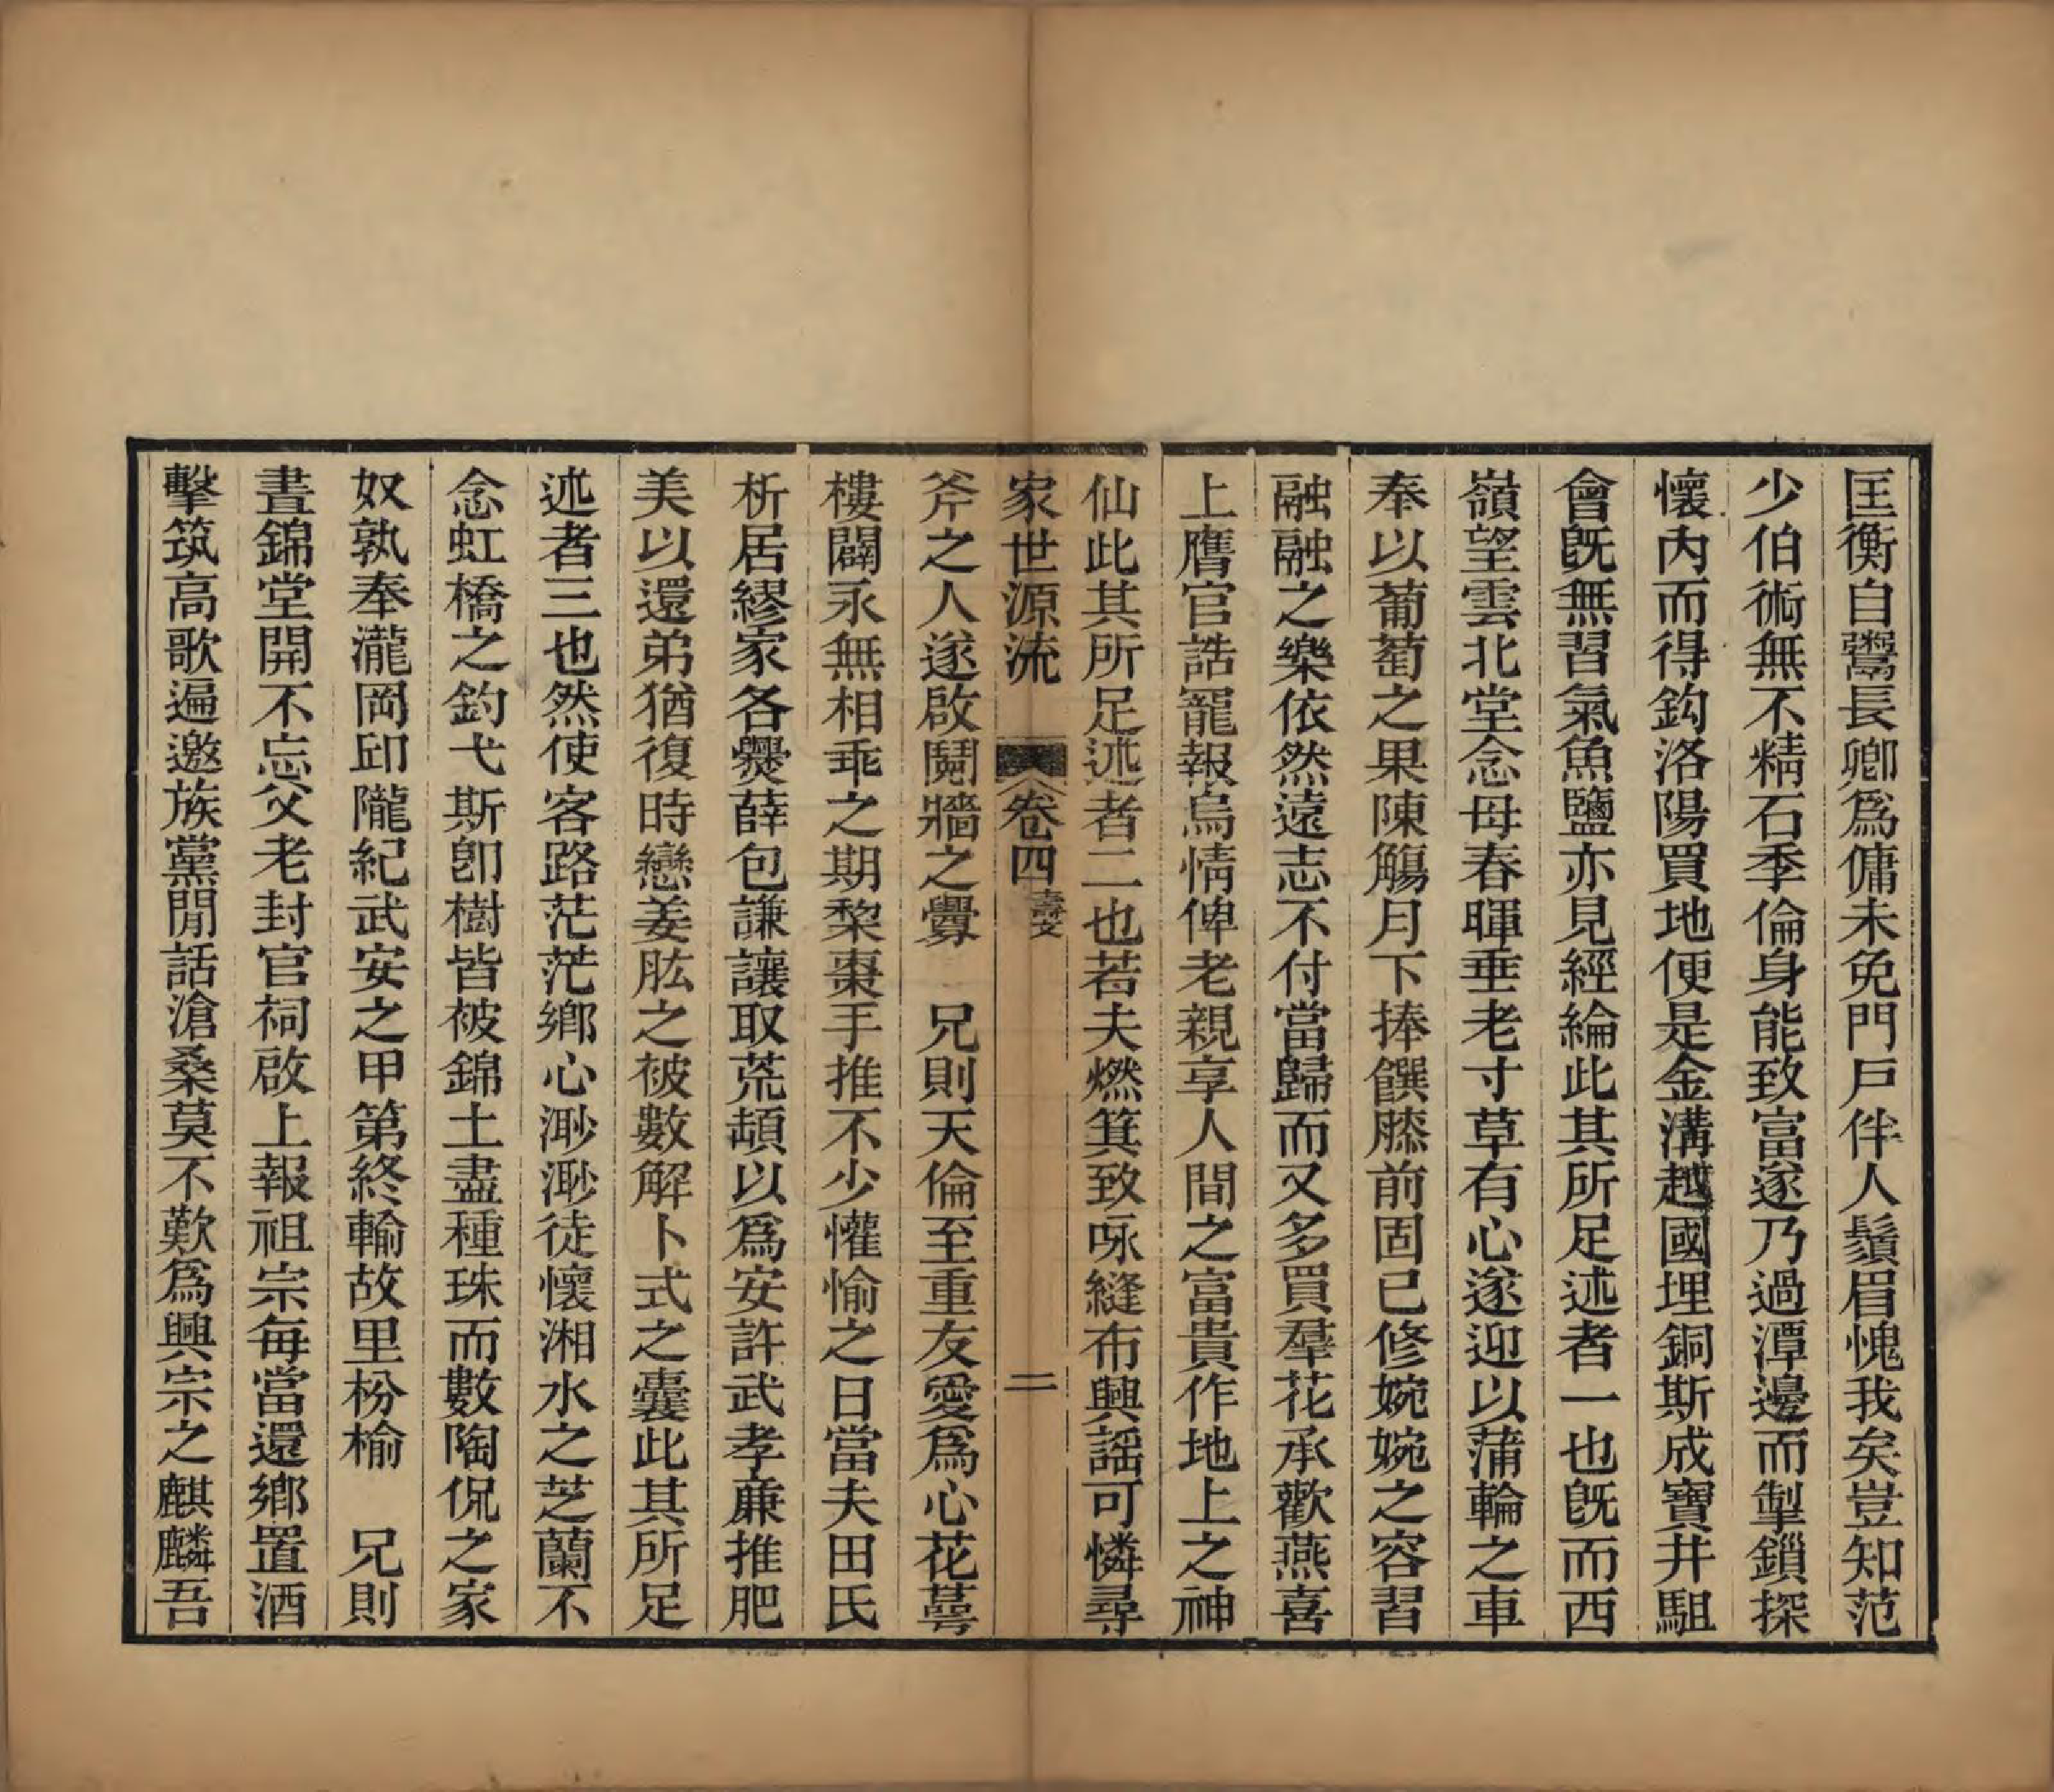 匡衡自鬻長卿爲傭未免門戸伴人鬚眉愧我矣豈知范
少伯術無不精石季倫身能致富遂乃過潭邊而掣鎖探
懷內而得鈎洛陽買地便是金溝越國埋銅斯成寶井駔
會旣無習氣魚鹽亦見經綸此其所足述者一也旣而西
嶺望雲北堂念母春暉垂老寸草有心遂迎以蒲輪之車
奉以葡萄之果陳觴月下捧饌膝前固已修婉婉之容習
融融之樂依然遠志不付當歸而又多買羣花承歡燕喜
上膺官誥寵報烏情俾老親享人間之富貴作地上之神
仙此其所足述者二也若夫燃箕致咏縫布興謠可憐尋
家世源流 卷四 壽文 二
斧之人遂啟鬩牆之釁 兄則天倫至重友愛爲心花萼
樓闢永無相乖之期棃棗手推不少懽愉之日當夫田氏
析居繆家各爨薛包謙讓取荒頓以爲安許武孝亷推肥
美以還弟猶復時戀姜肱之被數解卜式之囊此其所足
述者三也然使客路茫茫鄉心渺渺徒懷湘水之芝蘭不
念虹橋之釣弋斯卽樹皆被錦土盡種珠而數陶侃之家
奴孰奉瀧岡邱隴紀武安之甲第終輸故里枌榆 兄則
晝錦堂開不忘父老封官祠啟上報祖宗每當還鄉置酒
擊筑高歌遍邀族黨閒話滄桑莫不歎爲興宗之麒麟吾